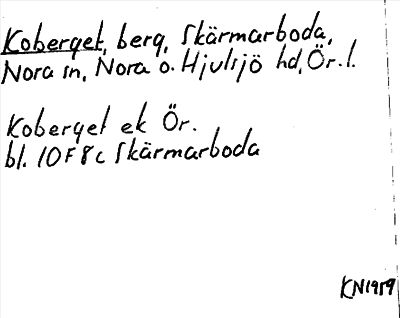 Koberget, berg, Skärmarboda,
Nora sn, Nora o. Hjulsjö hd, Ör. l.
Koberget ek Ör.
bl. 10F 8c Skärmarboda
KN1959